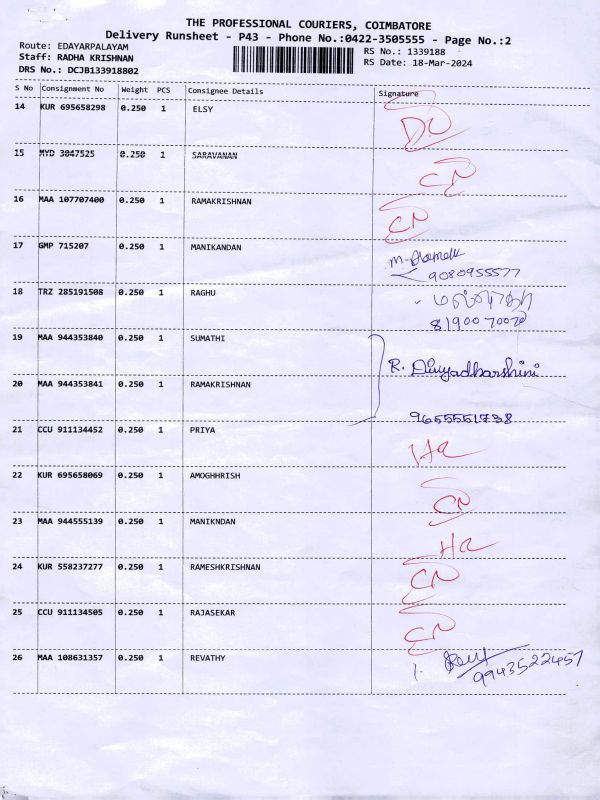 THE PROFESSIONAL COURIERS, COIMBATORE
Delivery Runsheet - P43 - Phone No.:0422-3505555 - Page No.:2
Route: EDAYARPALAYAM
Staff: RADHA KRISHNAN
DRS No.: DCJB133918802
RS No.: 1339188
RS Date: 18-Mar-2024
S No Consignment No Weight PCS Consignee Details Signature
14 KUR 695658298 0.250 1 ELSY
15 MYD 3047525 0.250 1 SARAVANAN
16 MAA 107707400 0.250 1 RAMAKRISHNAN
17 GMP 715207 0.250 1 MANIKANDAN
9080955577
18 TRZ 285191508 0.250 1 RAGHU
19 MAA 944353840 0.250 1 SUMATHI
R. Divyadharshini
20 MAA 944353841 0.250 1 RAMAKRISHNAN
9655551738
21 CCU 911134452 0.250 1 PRIYA
22 KUR 695658069 0.250 1 AMOGHHRISH
23 MAA 944555139 0.250 1 MANIKNDAN
24 KUR 558237277 0.250 1 RAMESHKRISHNAN
25 CCU 911134505 0.250 1 RAJASEKAR
26 MAA 108631357 0.250 1 REVATHY
9943522457